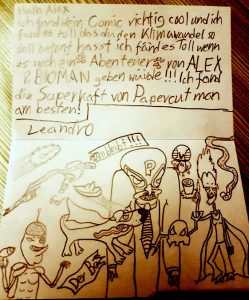 Hallo Alex
ich fand dein Comic richtig cool und ich
fand es toll das du den Klimawandel so
doll betont hasst ich fänd es Toll wenn
es noch ein Abenteuer von ALEX
& BIOMAN geben würde!!! Ich fand
die Superkraft von Papercut man
am besten!
Leandro
P